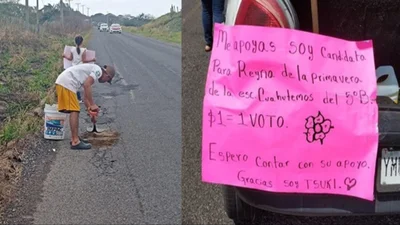 Me apoyas soy Candidata
Para Reyna de la primavera
de la esc. Cuahutemos del 5°B.
$1 = 1 VOTO.
Espero Contar con su apoyo.
Gracias soy TSUKI.
YM